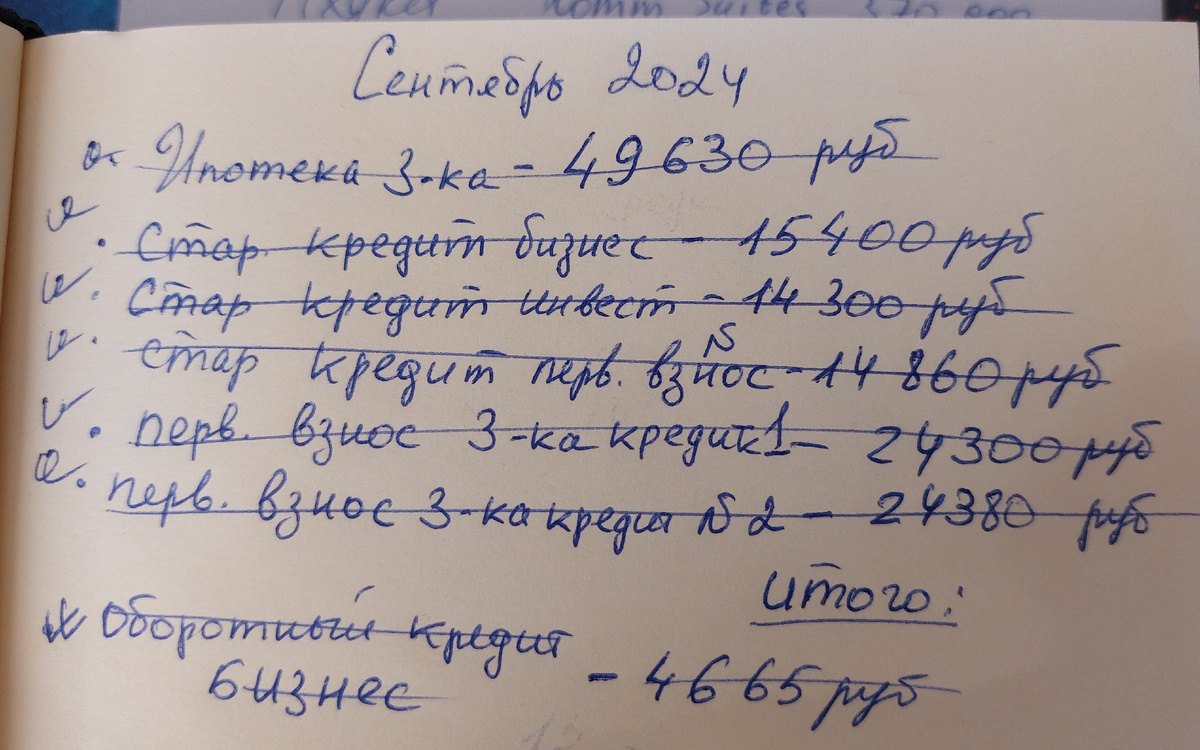 Сентябрь 2024
Ипотека 3-ка - 49 630 руб
Стар. кредит бизнес - 15 400 руб
Стар кредит инвест - 14 300 руб
Стар кредит перв. взнос - 14 860 руб
перв. взнос 3-ка кредит №1 - 24 300 руб
перв. взнос 3-ка кредит №2 - 24380 руб
итого:
Оборотный кредит
БИЗНЕС - 4665 руб